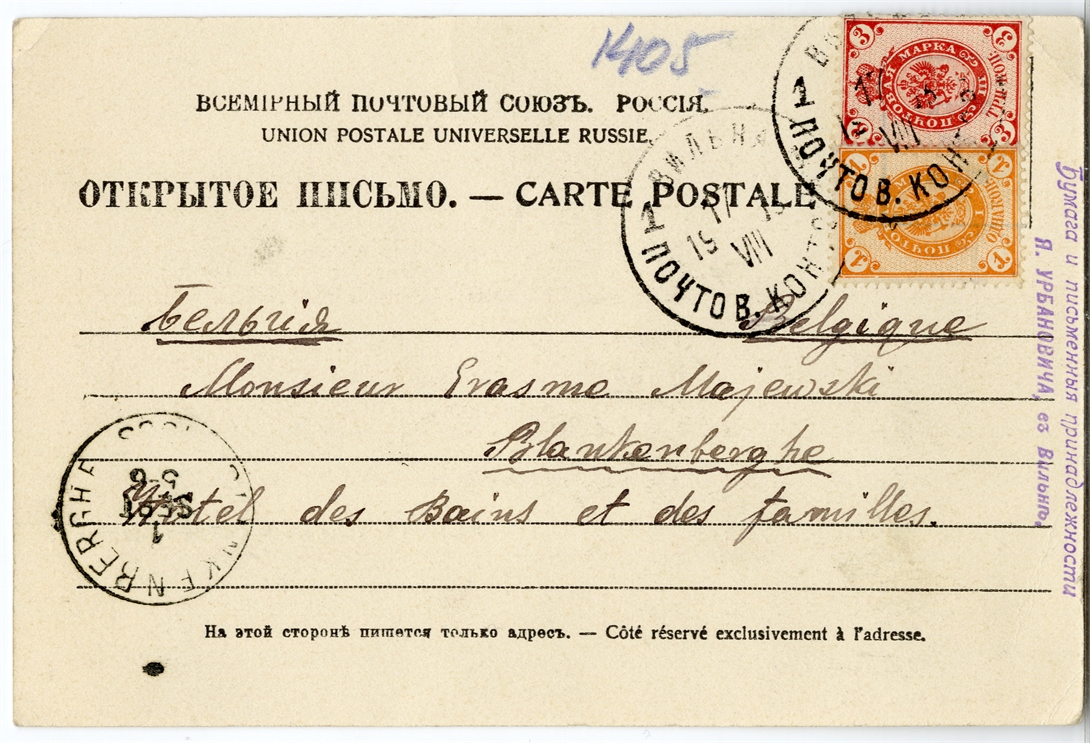 1405
ВСЕМІРНЫЙ ПОЧТОВЫЙ СОЮЗЪ. РОССІЯ.
UNION POSTALE UNIVERSELLE RUSSIE.
ОТКРЫТОЕ ПИСЬМО. — CARTE POSTALE
3 МАРКА 3
1 1
1 ПОЧТОВ. КОН
17 VIII
ВИЛЬНА
17 VIII 19
1 ПОЧТОВ. КОНТ
Бельгія Belgique
Monsieur Erasme Majewski
Blankenberghe
Hôtel des Bains et des familles.
1 SEPT 5-6
На этой сторонѣ пишется только адресъ. — Côté réservé exclusivement à l'adresse.
Бумага и письменныя принадлежности
Я. УРБАНОВИЧА, въ Вильнѣ.